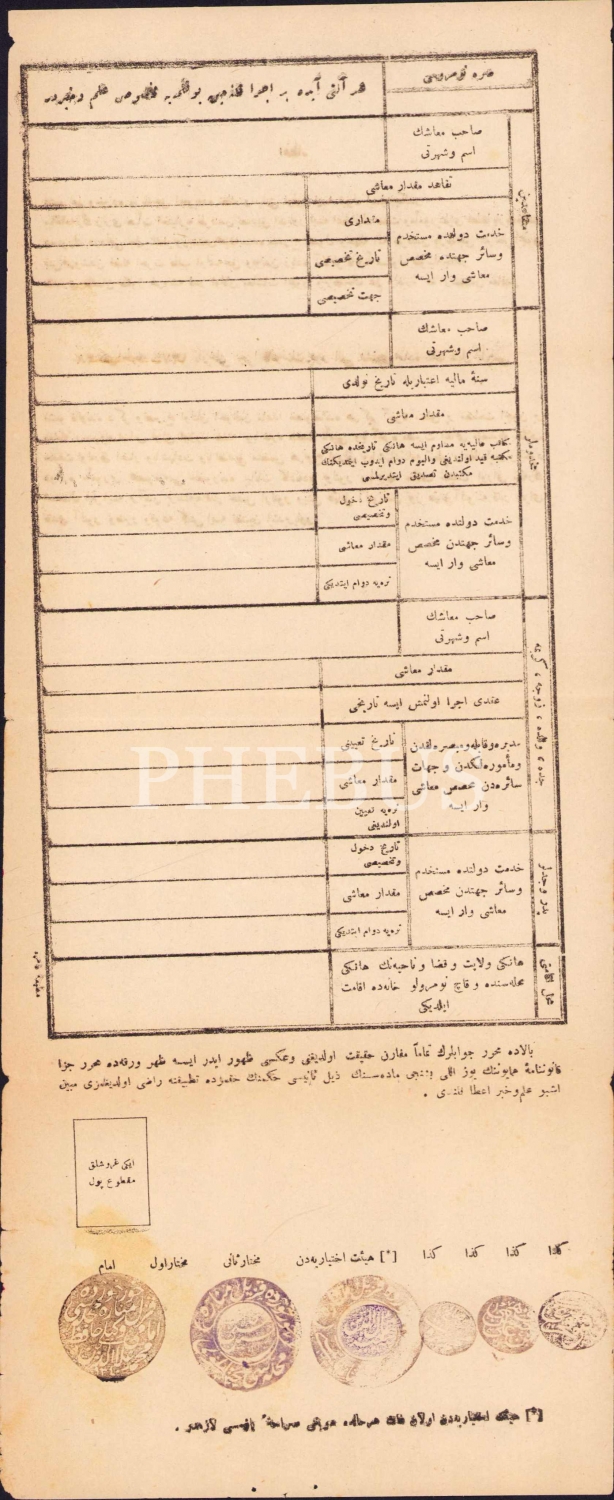 صره نومروسی
هر آلتی آیده بر اجرا قلنه‌جق یوقلمه‌یه مخصوص علم وخبردر
متقاعدین
صاحب معاشك
اسم وشهرتی
تقاعد مقدار معاشی
خدمت دولتده مستخدم
وسائر جهتده مخصص
معاشی وار ایسه
مقداری
تاریخ تخصیصی
جهت تخصیصی
صاحب معاشك
اسم وشهرتی
سنهٔ مالیه اعتباریله تاریخ تولدی
مقدار معاشی
مکاتب عالیه‌یه مداوم ایسه هانکی تاریخده هانکی
مکتبه قید اولندیغی والیوم دوام ایدوب ایتدیکنك
مکتبدن تصدیق ایتدیرلمسی
خدمت دولتده مستخدم
وسائر جهتدن مخصص
معاشی وار ایسه
تاریخ دخول
وتخصیصی
مقدار معاشی
نره‌یه دوام ایتدیکی
جده ، والده ، زوجه ، کریمه
صاحب معاشك
اسم وشهرتی
مقدار معاشی
عقدی اجرا اولنمش ایسه تاریخی
مدیره وقابله ومبصره‌لقدن
ومأموره‌لکدن وجهات
سائره‌دن مخصص معاشی
وار ایسه
تاریخ تعیینی
مقدار معاشی
نره‌یه تعیین
اولندیغی
پدر وجدلر
خدمت دولتده مستخدم
وسائر جهتدن مخصص
معاشی وار ایسه
تاریخ دخول
وتخصیصی
مقدار معاشی
نره‌یه دوام ایتدیکی
محل اقامتی
هانکی ولایت وقضا وناحیه‌نك هانکی
محله‌سنده وقاچ نومرولو خانه‌ده اقامت
ایلدیکی
مطبعهٔ عامره
بالاده محرر جوابلرك تماماً مقارن حقیقت اولدیغی وعکسی ظهور ایدر ایسه ظهر ورقه‌ده محرر جزا
قانوننامهٔ همایوننك یوز اللی بشنجی ماده‌سنك ذیل ثانیسی حکمنك حقمزده تطبیقنه راضی اولدیغمزی مبین
اشبو علم وخبر اعطا قلندی .
ایکی غروشلق
مقطوع پول
امام مختار اول مختار ثانی [*] هیئت اختیاریه‌دن کذا کذا کذا کذا
[*] هیئت اختیاریه‌دن اولان ذاتك هر حالده هویتی صراحةً یازلمسی لازمدر .
PHEBUS